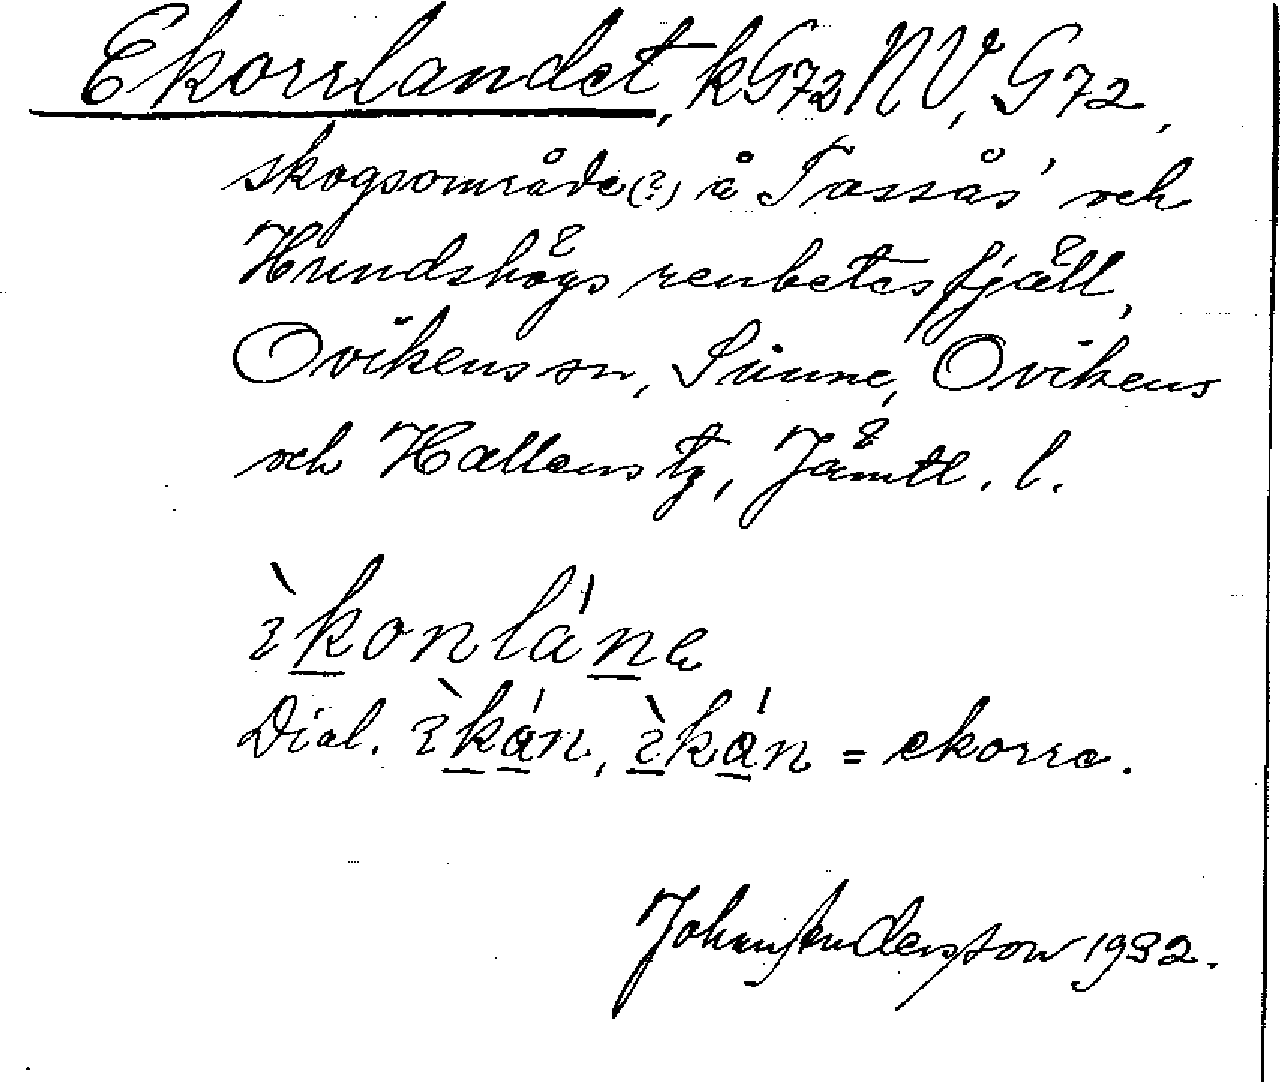 Ekorrlandet, kG72NV, G72,
skogsområde(?) å Tossås' och
Hundshögs renbetesfjäll,
Ovikens sn, Sunne, Ovikens
och Hallens tg, Jämtl. l.
ìkonláne
Dial. ìkán, ìkán = ekorre.
John Andersson 1932.